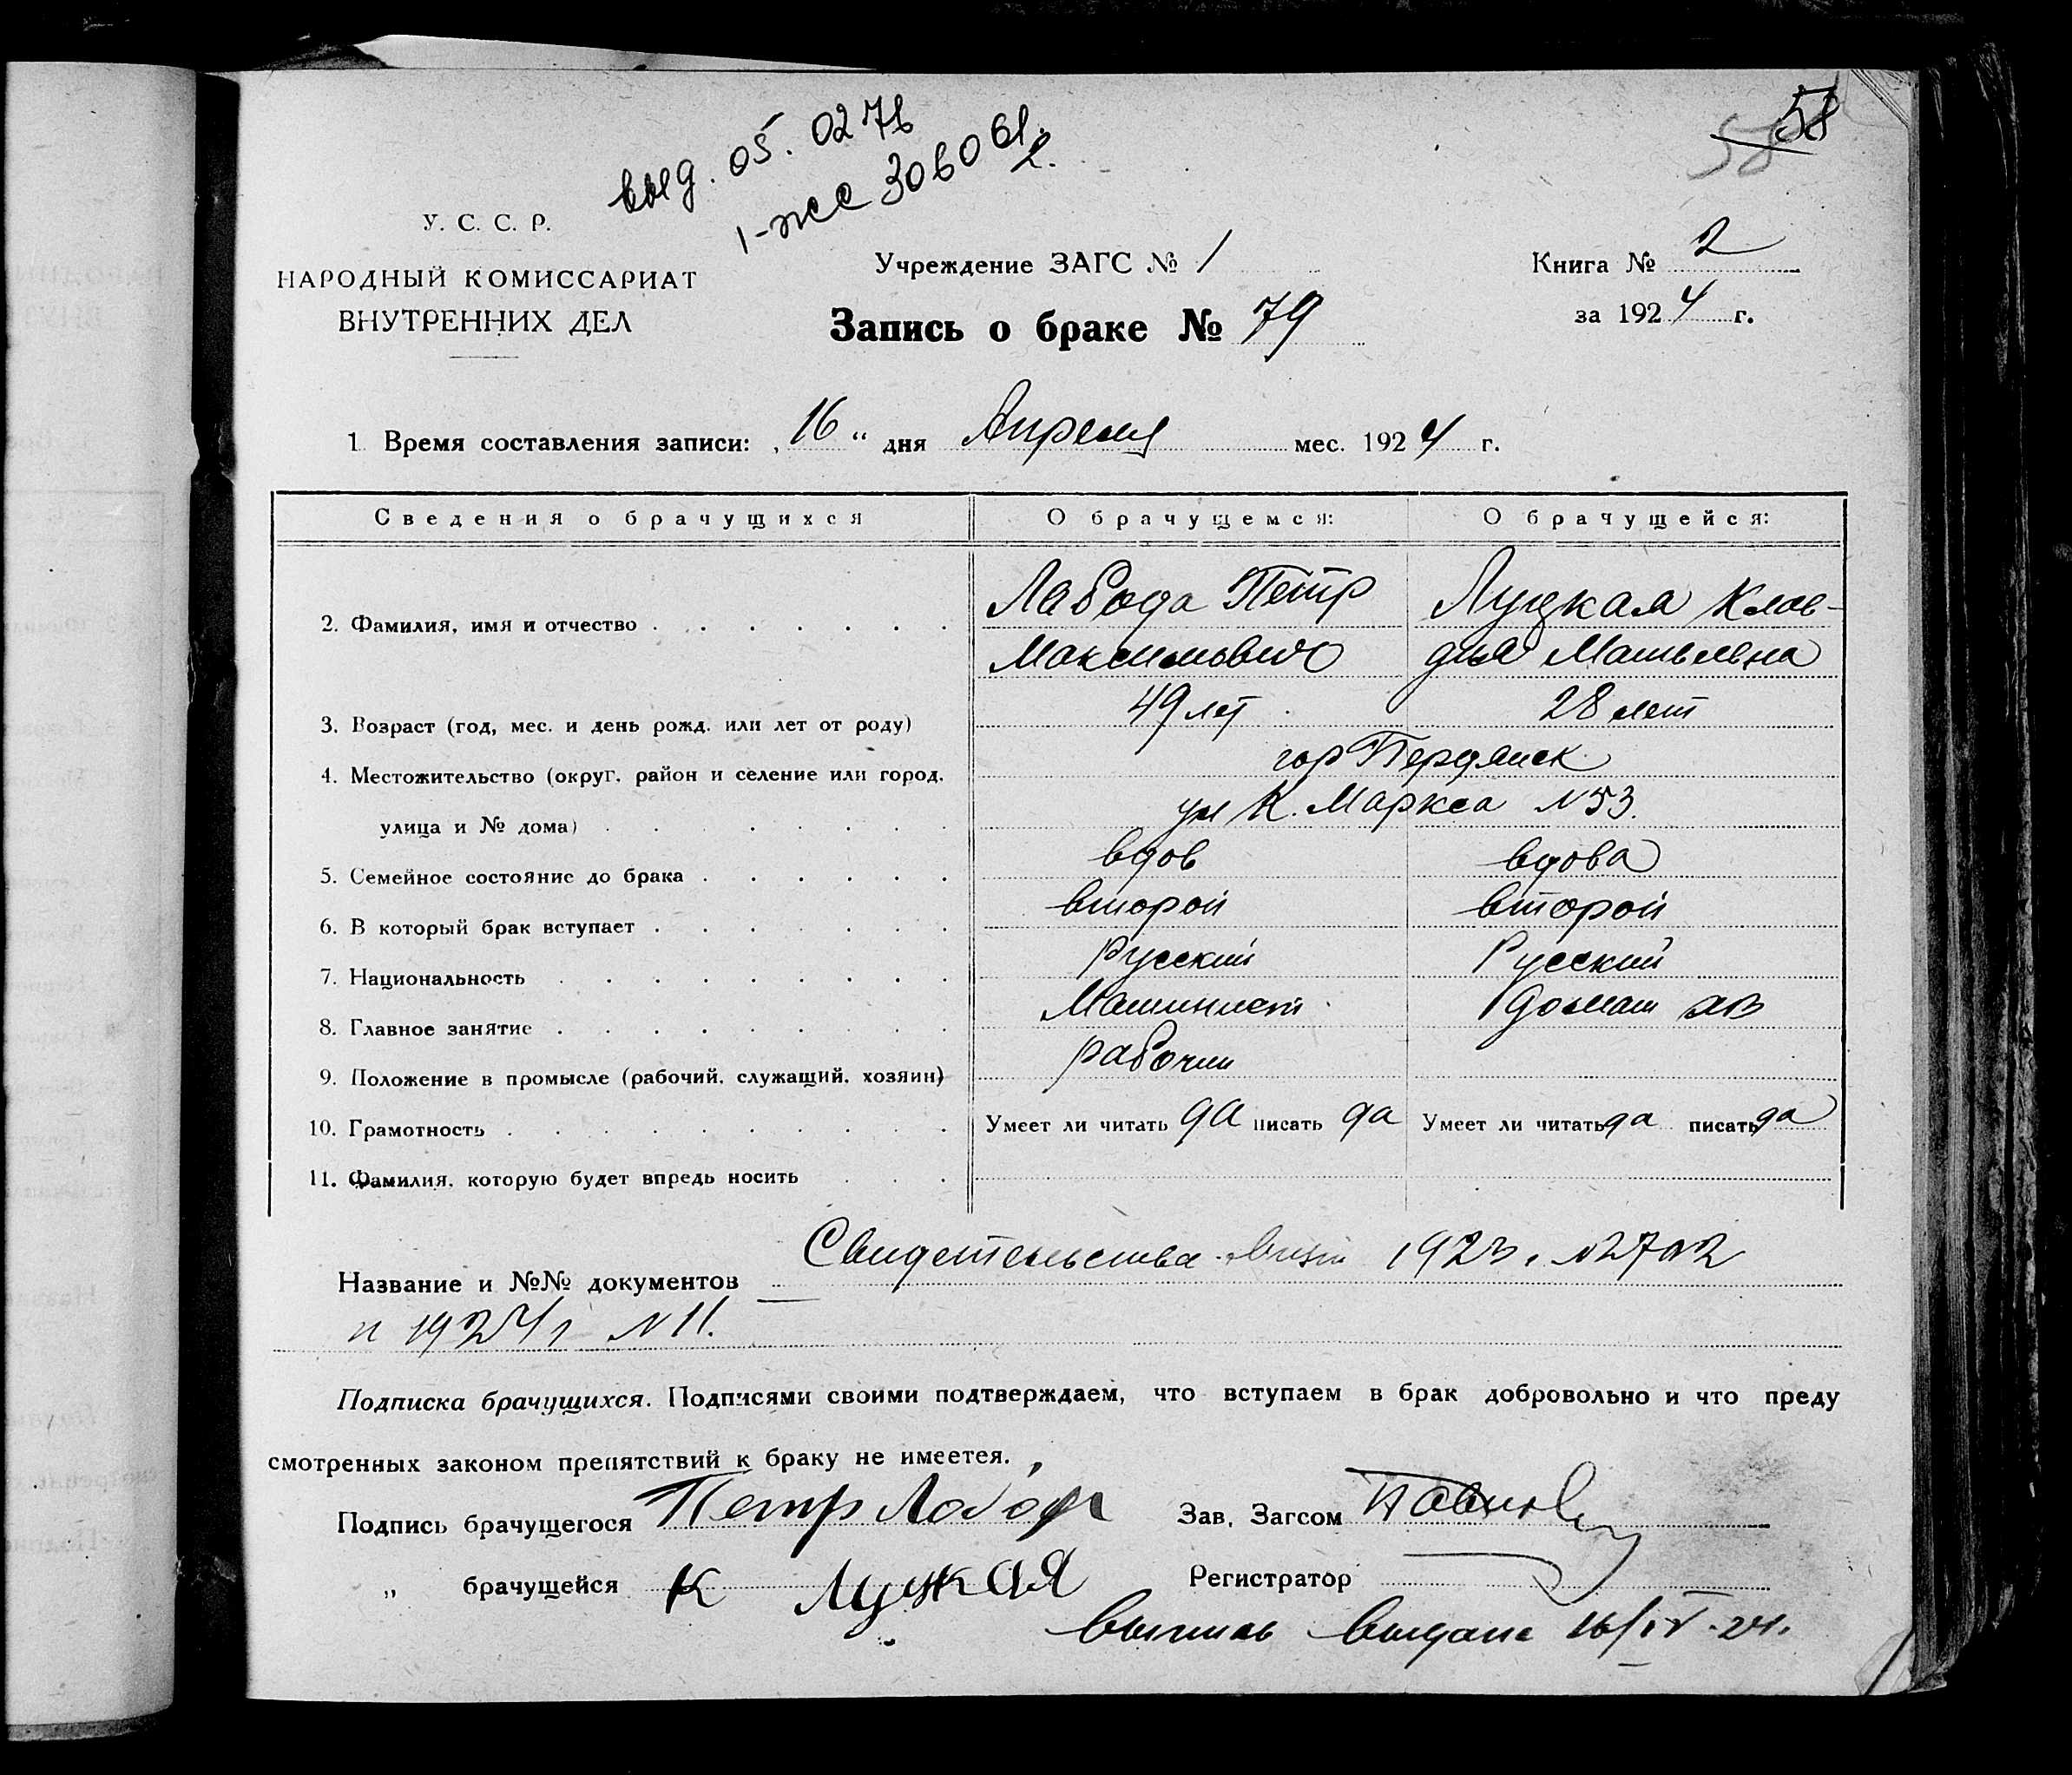 58
58
выд. 05. 02 71
1-ЖС 306061
У. С. С. Р.
НАРОДНЫЙ КОМИССАРИАТ
ВНУТРЕННИХ ДЕЛ
Учреждение ЗАГС № 1
Запись о браке № 79
Книга № 2
за 1924 г.
1 Время составления записи: „16“ дня Апреля мес. 1924 г.
Сведения о брачущихся О брачущемся: О брачущейся:
2. Фамилия, имя и отчество Лабода Петр Луцкая Клав-
Максимович дия
3. Возраст (год, мес. и день рожд. или лет от роду) 49 лет 28 лет
4. Местожительство (округ, район и селение или город, гор Бердянск
улица и № дома) ул К. Маркса №53.
5. Семейное состояние до брака вдов вдова
6. В который брак вступает второй второй
7. Национальность Русский Русский
8. Главное занятие Машинист домаш хоз
9. Положение в промысле (рабочий, служащий, хозяин) рабочий
10. Грамотность Умеет ли читать да писать да Умеет ли читать да писать да
11. Фамилия, которую будет впредь носить
Название и №№ документов Свидетельства 1923 г.
и 1924 г N 11.
Подписка брачущихся. Подписями своими подтверждаем, что вступаем в брак добровольно и что преду
смотренных законом препятствий к браку не имеется.
Подпись брачущегося Петр Лобода Зав. Загсом
„ брачущейся К Луцкая Регистратор
Выпись выдана 16/IV-24.